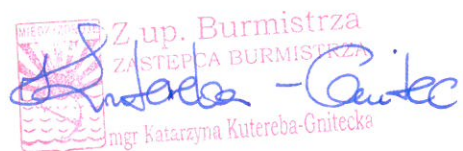 Z up. Burmistrza
ZASTĘPCA BURMISTRZA
Kutereba-Gnitec
mgr Katarzyna Kutereba-Gnitecka